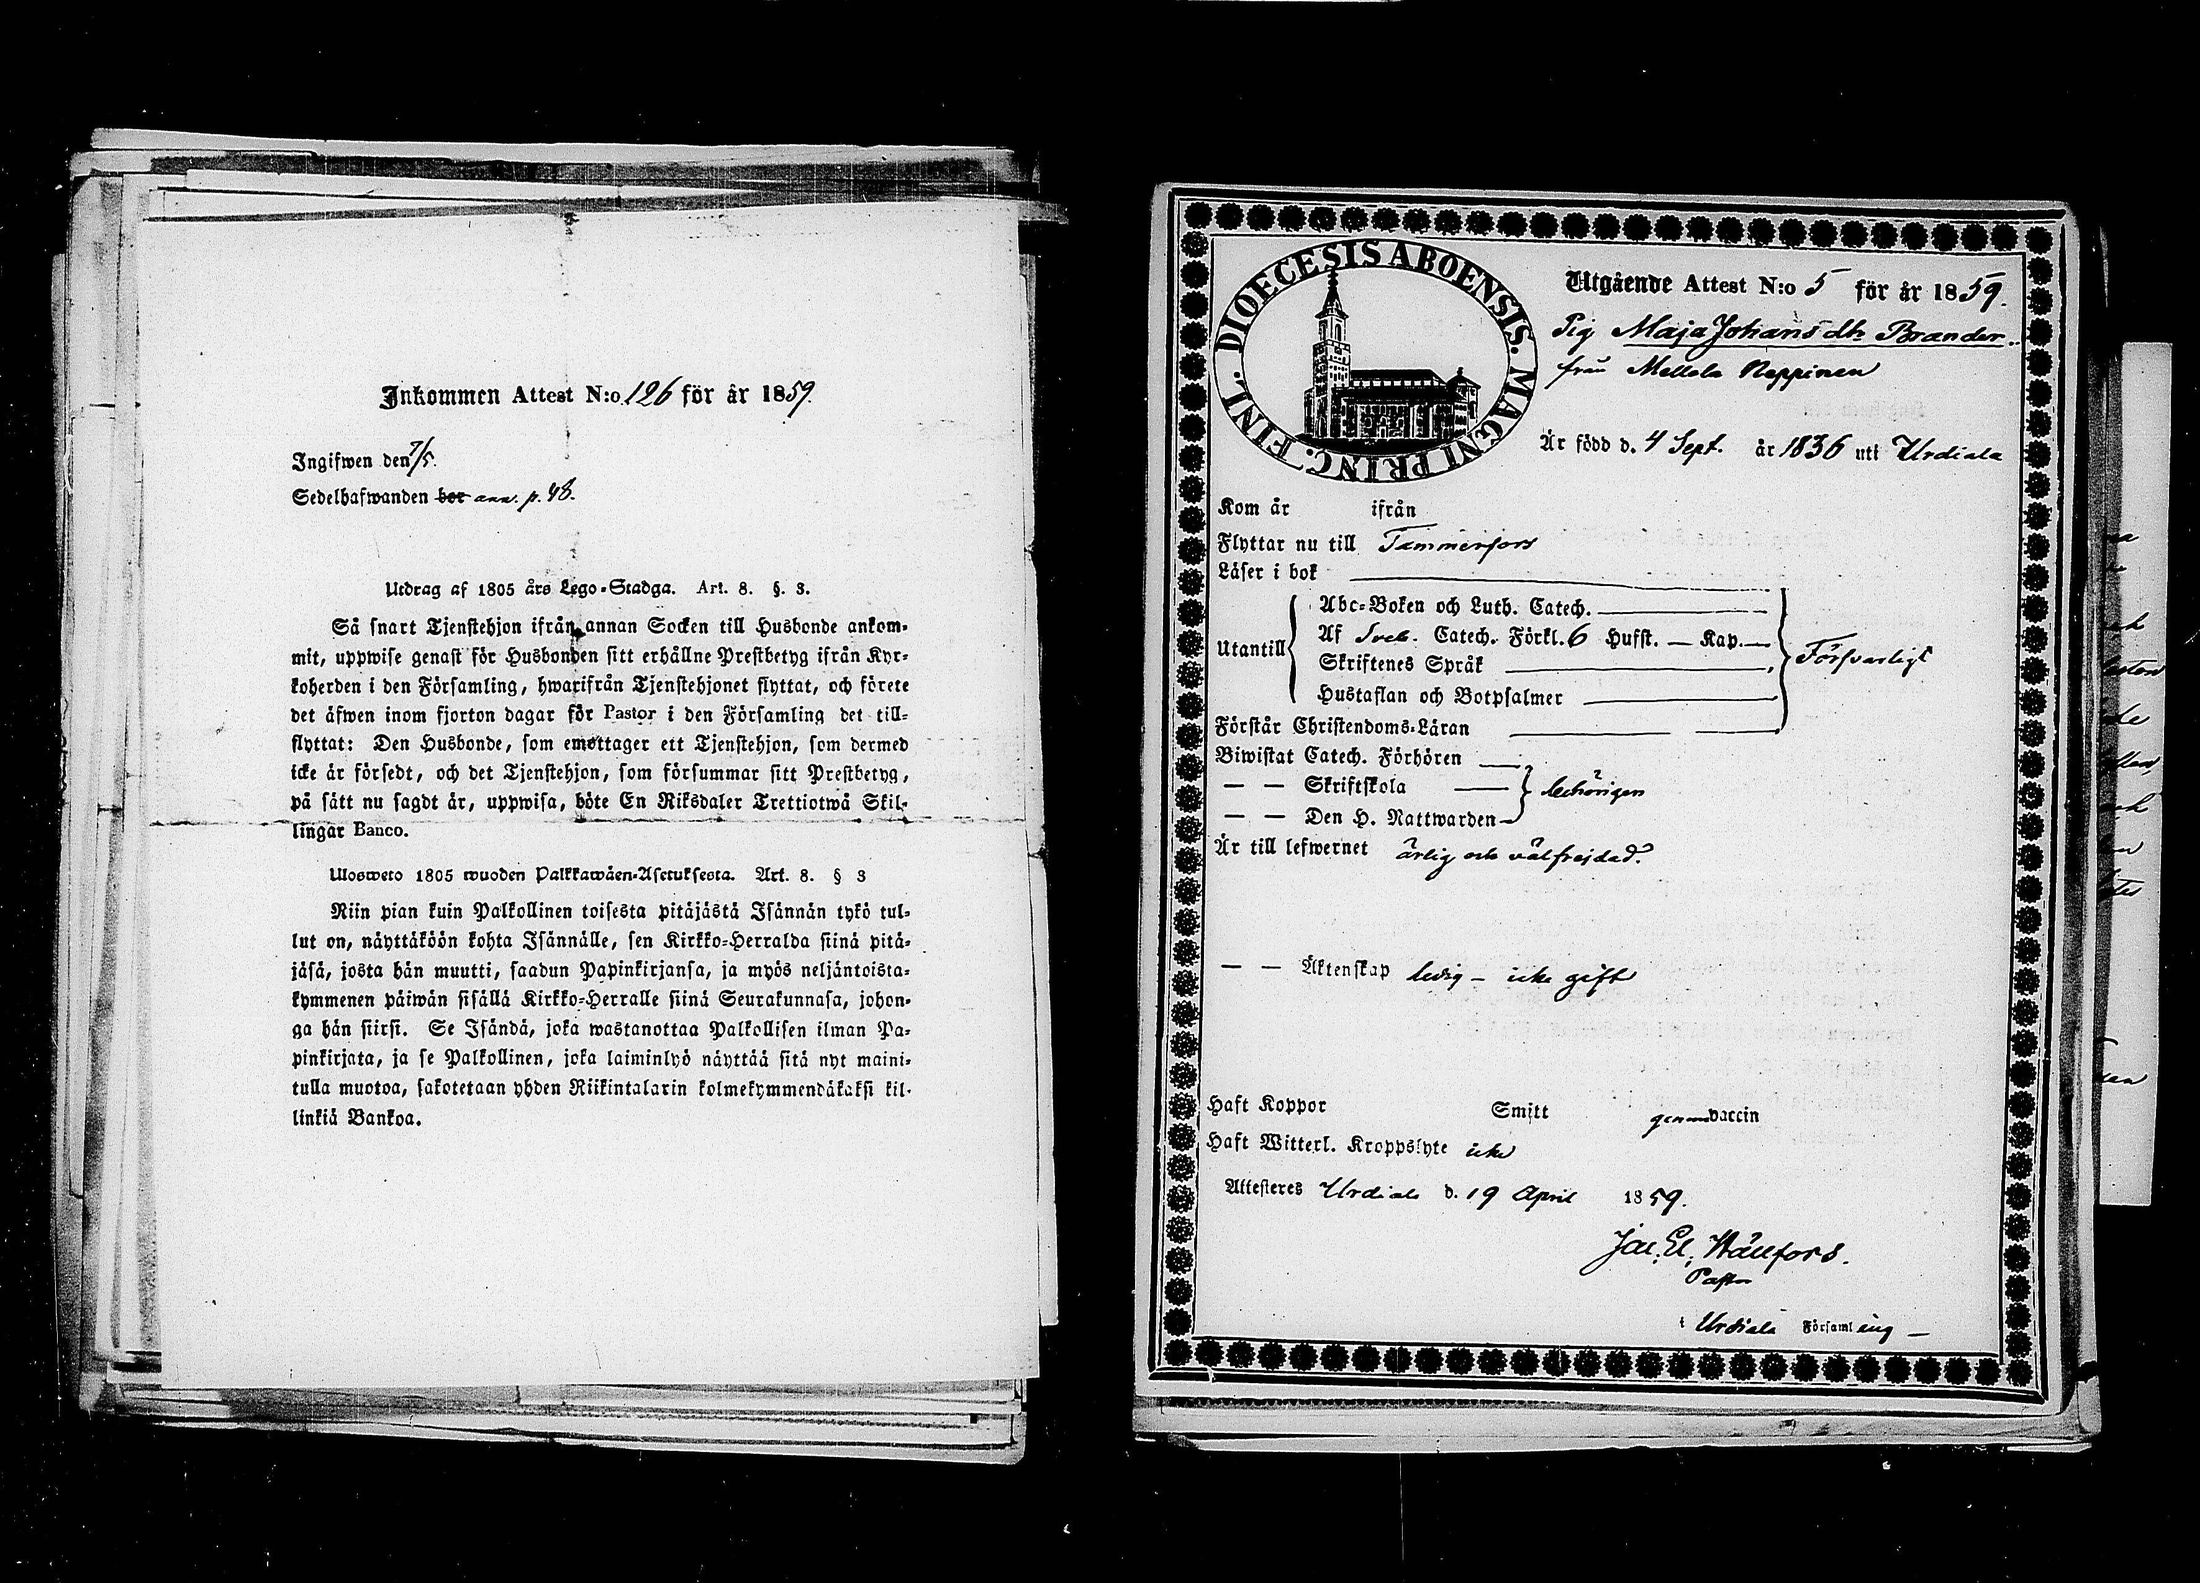 Inkommen Attest N:o 126 för år 1859.
Ingifwen den 7/5.
Sedelhafwanden bor ann. p. 48.
Utdrag af 1805 års Lego-Stadga. Art. 8. §. 3.
Så snart Tjenstehjon ifrån annan Socken till Husbonde ankom-
mit, uppwise genast för Husbonden sitt erhållne Prestbetyg ifrån Kyr-
koherden i den Församling, hwarifrån Tjenstehjonet flyttat, och förete
det äfwen inom fjorton dagar för Pastor i den Församling det till-
flyttat: Den Husbonde, som emottager ett Tjenstehjon, som dermed
icke är försedt, och det Tjenstehjon, som försummar sitt Prestbetyg,
på sätt nu sagdt är, uppwisa, böte En Riksdaler Trettiotwå Skil-
lingar Banco.
Ulosweto 1805 wuoden Palkkawäen-Asetuksesta. Art. 8. § 3
Niin pian kuin Palkollinen toisesta pitäjästä Isännän tykö tul-
lut on, näyttäköön kohta Isännälle, sen Kirkko-Herralda siinä pitä-
jäsä, josta hän muutti, saadun Papinkirjansa, ja myös neljäntoista-
kymmenen päiwän sisällä Kirkko-Herralle siinä Seurakunnasa, johon-
ga hän siirsi. Se Isändä, joka wastanottaa Palkollisen ilman Pa-
pinkirjata, ja se Palkollinen, joka laiminlyö näyttää sitä nyt maini-
tulla muotoa, sakotetaan yhden Riikintalarin kolmekymmendäkaksi kil-
linkiä Bankoa.
DIOECESIS ABOENSIS. MAGNI PRINC. FINL.
Utgående Attest N:o 5 för år 1859.
Pig Maja Johans dr Brander
från Mellola Nappinen
Är född d. 4 Sept. år 1836 uti Urdiala
Kom år ifrån
Flyttar nu till Tammerfors
Läser i bok
Abc-Boken och Luth. Catech.
Utantill Af Sveb. Catech. Förkl. 6 Hufst. — Kap. — Försvarligt
Skriftenes Språk
Hustaflan och Botpsalmer
Förstår Christendoms-Läran
Biwistat Catech. Förhören
— — Skriftskola behörigen
— — Den H. Nattwarden
Är till lefwernet ärlig och välfrejdad.
— — Äktenskap ledig — icke gift
Haft Koppor Smitt genom vaccin
Haft Witterl. Kroppslyte icke
Attesteres Urdiala d. 19 April 1859.
Jac. El. Hällfors.
Pastor
i Urdiala Församling —